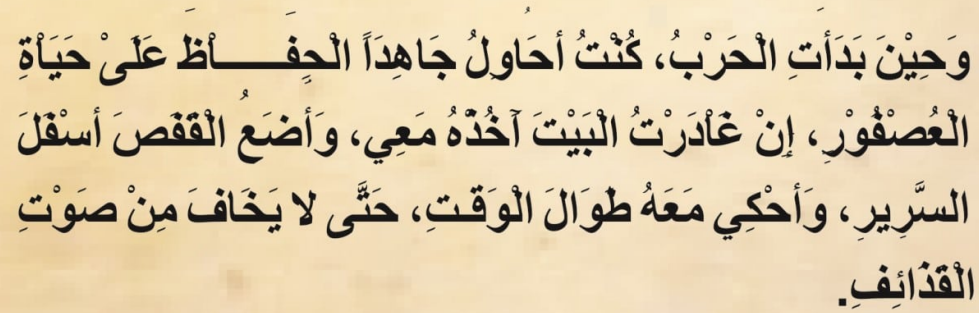 وَحِيْنَ بَدَأتِ الْحَرْبُ، كُنْتُ أحَاولُ جَاهِدَاً الْحِفَـــــاْظَ عَلَىْ حَيَاْةِ
الْعُصْفُوْرِ، إنْ غَاْدَرْتُ الْبَيْتَ آخُذْهُ مَعِي، وَأضَعُ الْقَفَصَ أسْفَلَ
السَّرِيرِ، وَأحْكِي مَعَهُ طوَالَ الْوَقْتِ، حَتَّى لا يَخَافَ مِنْ صَوْتِ
الْقَذَائِفِ.